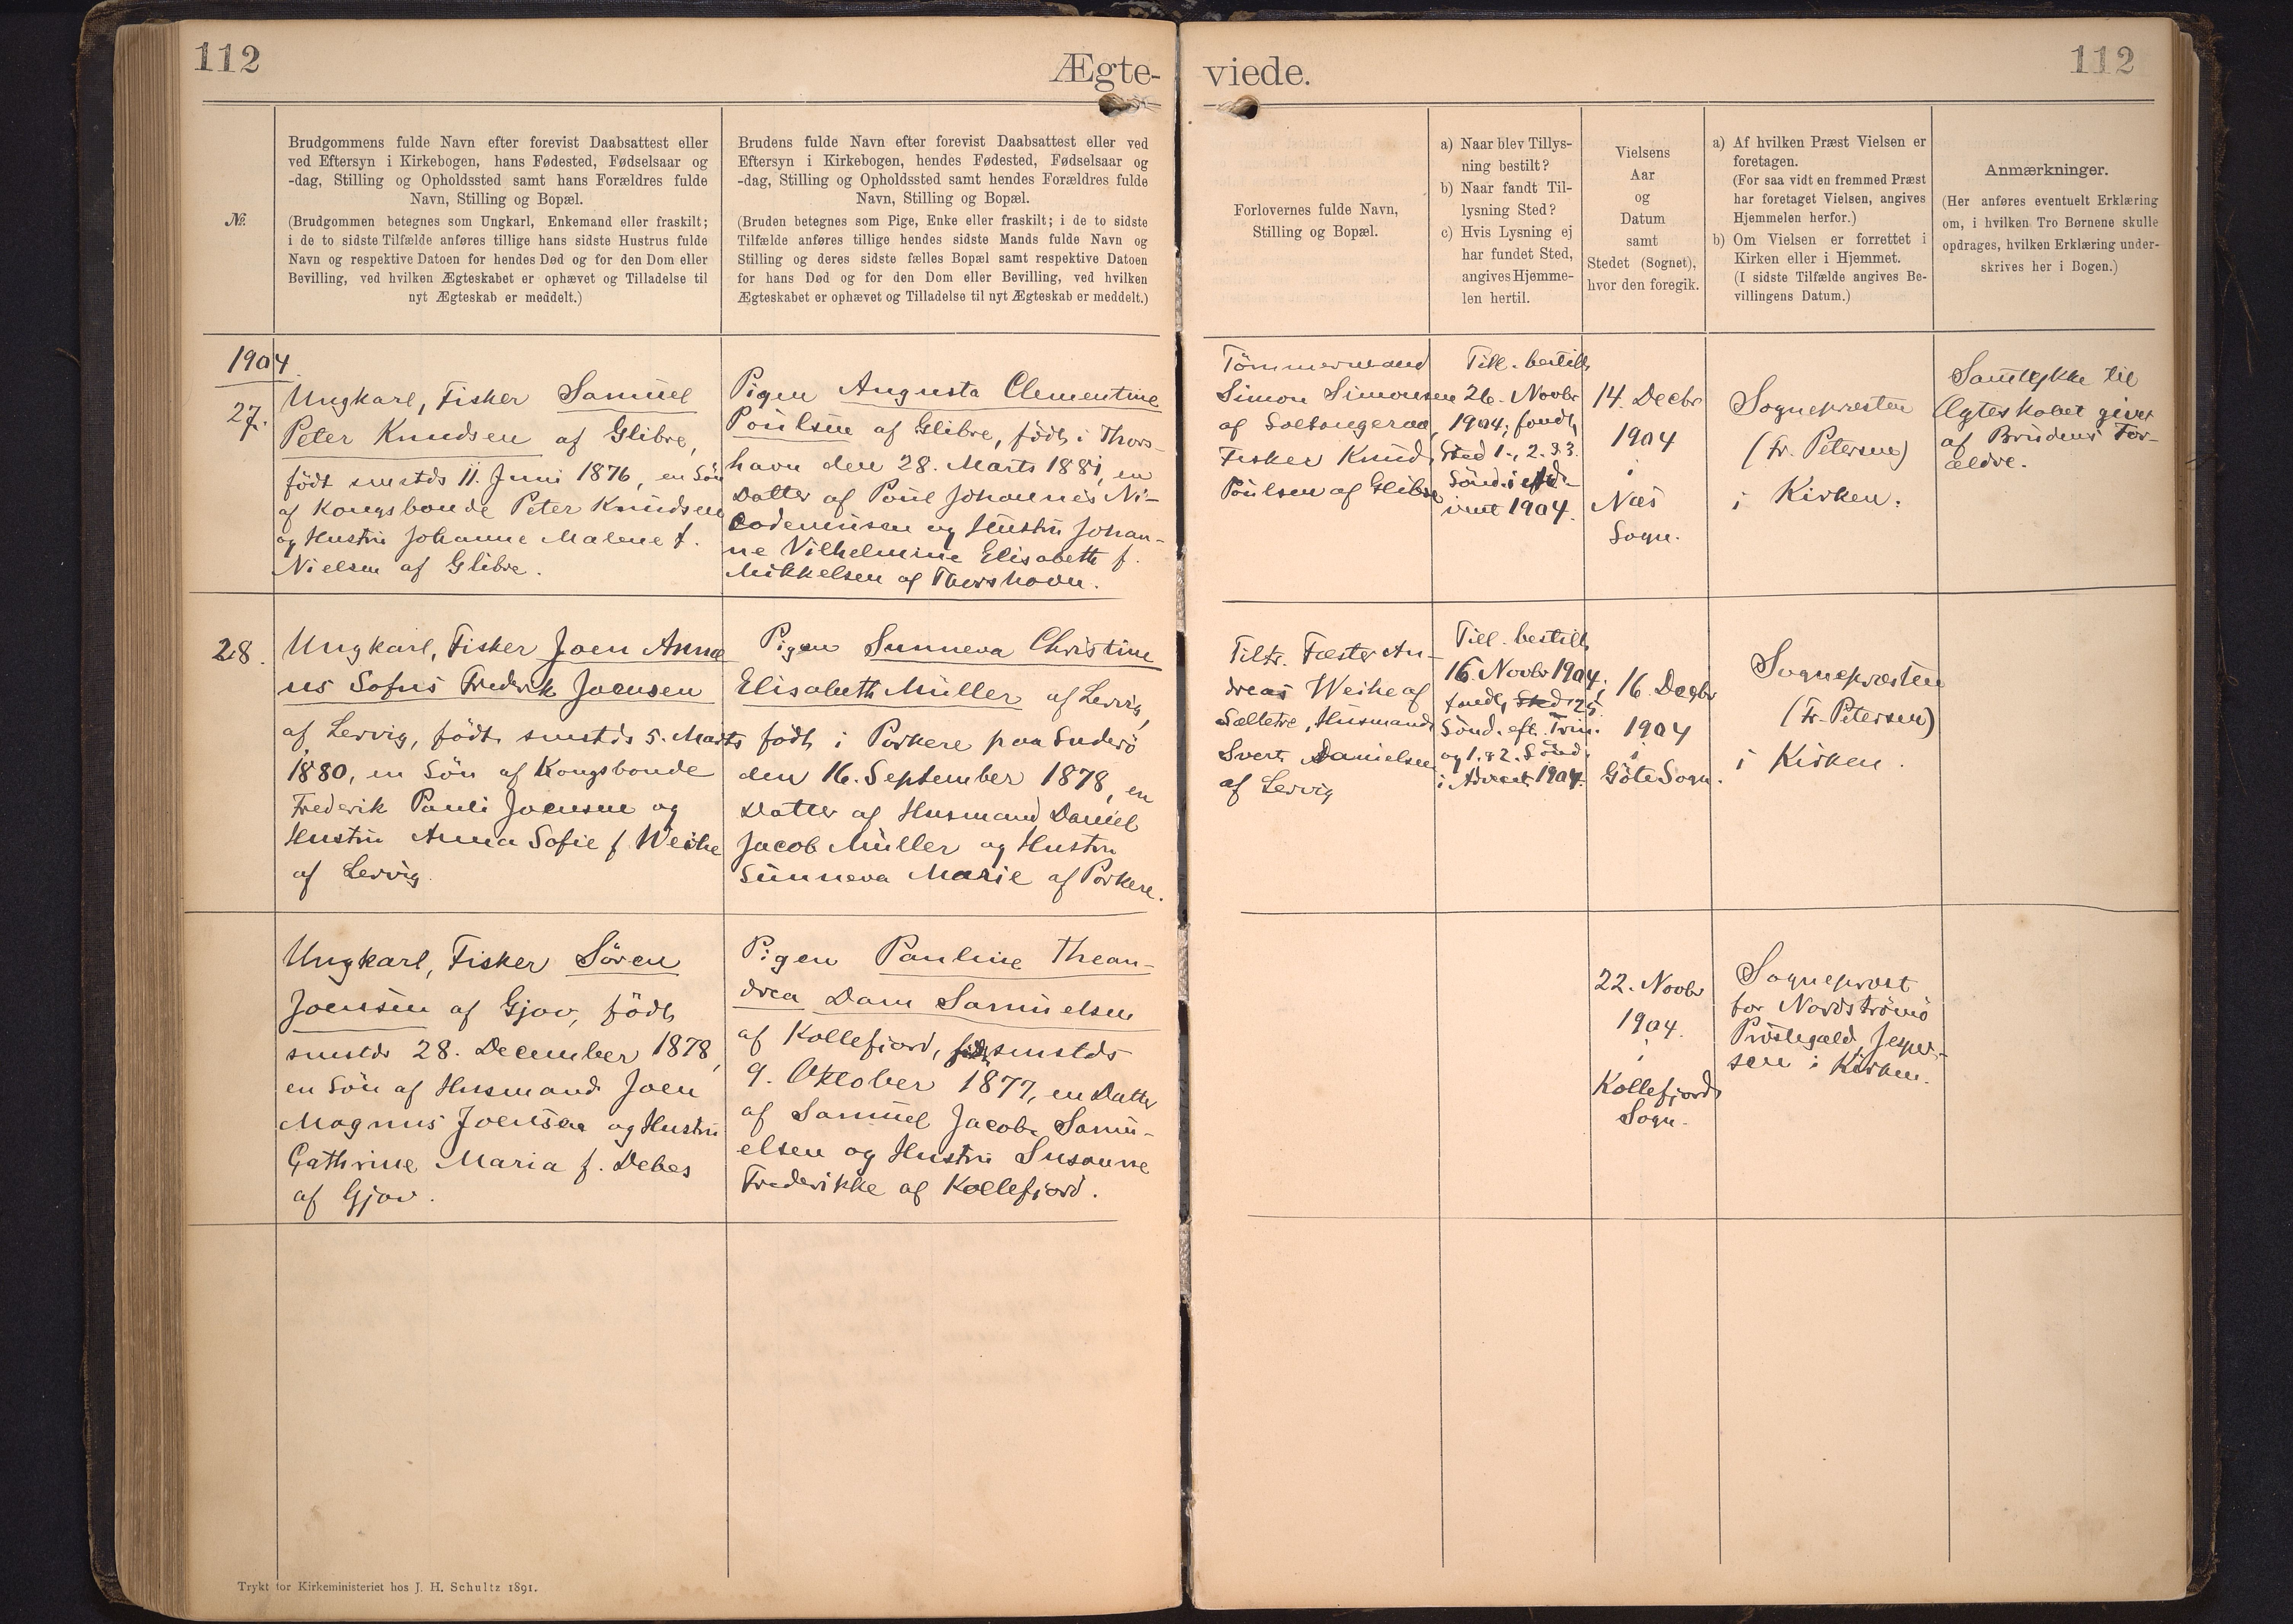 112
Ægte-
viede.
112
№.
Brudgommens fulde Navn efter forevist Daabsattest eller
ved Eftersyn i Kirkebogen, hans Fødested, Fødselsaar og
-dag, Stilling og Opholdssted samt hans Forældres fulde
Navn, Stilling og Bopæl.
(Brudgommen betegnes som Ungkarl, Enkemand eller fraskilt;
i de to sidste Tilfælde anføres tillige hans sidste Hustrus fulde
Navn og respektive Datoen for hendes Død og for den Dom eller
Bevilling, ved hvilken Ægteskabet er ophævet og Tilladelse til
nyt Ægteskab er meddelt.)
Brudens fulde Navn efter forevist Daabsattest eller ved
Eftersyn i Kirkebogen, hendes Fødested, Fødselsaar og
-dag, Stilling og Opholdssted samt hendes Forældres fulde
Navn, Stilling og Bopæl.
(Bruden betegnes som Pige, Enke eller fraskilt; i de to sidste
Tilfælde anføres tillige hendes sidste Mands fulde Navn og
Stilling og deres sidste fælles Bopæl samt respektive Datoen
for hans Død og for den Dom eller Bevilling, ved hvilken
Ægteskabet er ophævet og Tilladelse til nyt Ægteskab er meddelt.)
Forlovernes fulde Navn,
Stilling og Bopæl.
a) Naar blev Tillys-
ning bestilt?
b) Naar fandt Til-
lysning Sted?
c) Hvis Lysning ej
har fundet Sted,
angives Hjemme-
len hertil.
Vielsens
Aar
og
Datum
samt
Stedet (Sognet),
hvor den foregik.
a) Af hvilken Præst Vielsen er
foretagen.
(For saa vidt en fremmed Præst
har foretaget Vielsen, angives
Hjemmelen herfor.)
b) Om Vielsen er forrettet i
Kirken eller i Hjemmet.
(I sidste Tilfælde angives Be-
villingens Datum.)
Anmærkninger.
(Her anføres eventuelt Erklæring
om, i hvilken Tro Børnene skulle
opdrages, hvilken Erklæring under-
skrives her i Bogen.)
1904.
27.
Ungkarl, Fisker Samuel
Peter Knudsen af Glibre,
født smstds 11. Juni 1876, en Søn
af Kongsbonde Peter Knudsen
og Hustru Johanne Malene f.
Nielsen af Glibre.
Pigen Augusta Clementine
Poulsen af Glibre, født i Thors-
havn den 28. Marts 1881, en
Datter af Poul Johannes Ni-
codemusen og Hustru Johan-
ne Vilhelmine Elisabeth f.
Mikkelsen af Thorshavn.
Tömmermand
Simon Simonsen
af Soltangeraa,
Fisker Knud
Poulsen af Glibre
Till. bestilt
26. Novbr
1904; fandt
Sted 1., 2. & 3.
Sönd. i Ad-
vent 1904.
14. Decbr
1904
i
Næs
Sogn.
Sognepræsten
(Fr. Petersen)
i Kirken.
Samtykke til
Ægteskabet givet
af Brudens For-
ældre.
28.
Ungkarl, Fisker Joen Anna
us Sofus Frederik Joensen
af Lervig, födt smstds 5. Marts
1880, en Sön af Kongsbonde
Frederik Pauli Joensen og
Hustru Anna Sofie f Weihe
af Lervig.
Pigen Sunneva Christine
Elisabeth Müller af Lervig,
födt i Porkere paa Suderö
den 16. September 1878, en
Datter af Husmand Daniel
Jacob Müller og Hustru
Sunneva Marie af Porkere.
Tiltr. Fæster An-
dreas Weihe af
Sæltetre, Husmand
Svert Danielsen
af Lervig
Till. bestilt
16. Novbr 1904;
fandt Sted 25.
Sönd. eft. Trin.
og 1. & 2. Sönd.
i Advent 1904.
16. Decbr
1904
i
Göte Sogn.
Sognepræsten
(Fr. Petersen)
i Kirken.
Ungkarl, Fisker Sören
Joensen af Gjov, födt
smstds 28. December 1878,
en Sön af Husmand Joen
Magnus Joensen og Hustru
Cathrine Maria f. Debes
af Gjov.
Pigen Pauline Thean-
drea Dam Samuelsen
af Kollefjord, födt smstds
9. Oktober 1877, en Datter
af Samuel Jacob Samu-
elsen og Hustru Susanne
Frederikke af Kollefjord.
22. Novbr
1904.
i
Kollefjord
Sogn.
Sogneprost
for Nordströmö
Præstegæld Jesper-
sen i Kirken.
Trykt for Kirkeministeriet hos J. H. Schultz 1891.